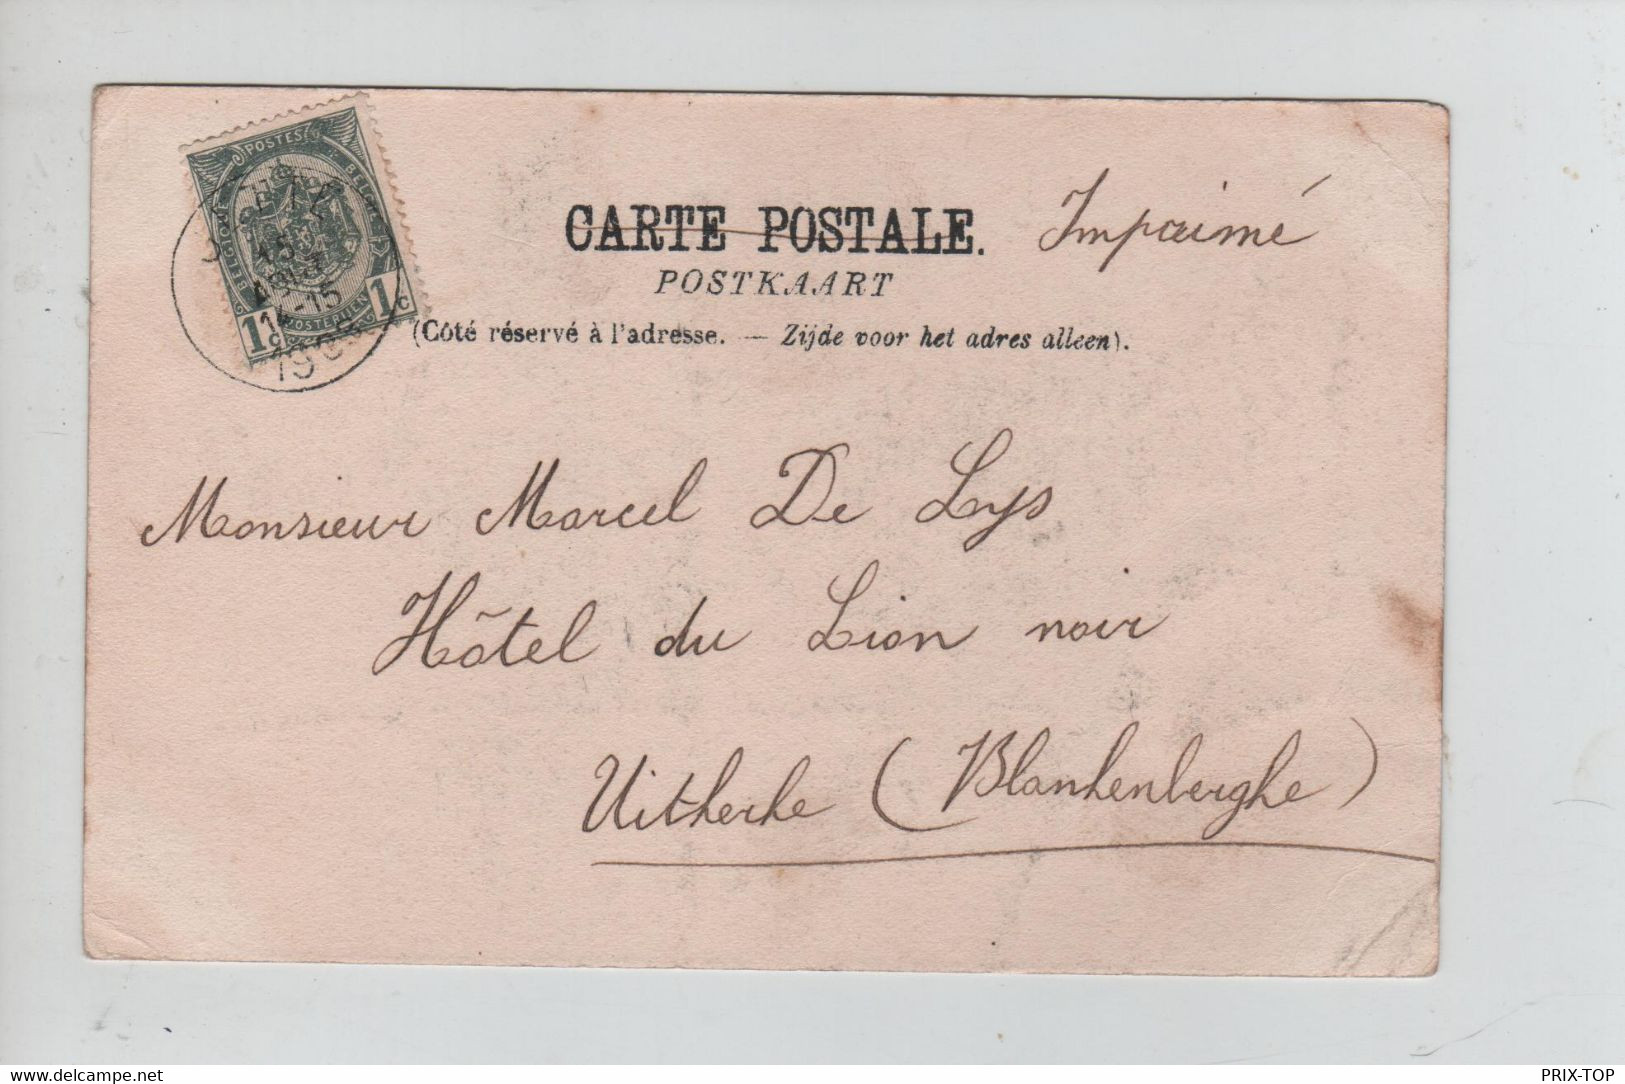 POSTES
BELGIQUE
BELGIË
POSTERIJEN
1c 1c
15
AOUT
14-15
CARTE POSTALE.
Imprimé
POSTKAART
(Côté réservé à l'adresse. — Zijde voor het adres alleen).
Monsieur Marcel De Lys
Hôtel du Lion noir
Uitkerke (Blankenberghe)
delcampe.net
PRIX-TOP